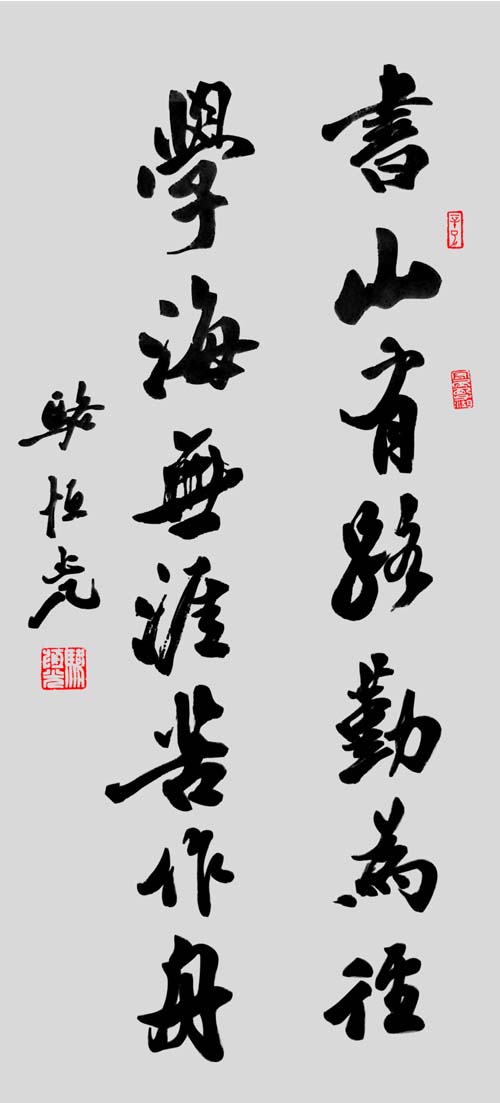 書山有路勤為徑
學海無涯苦作舟
駱恒光